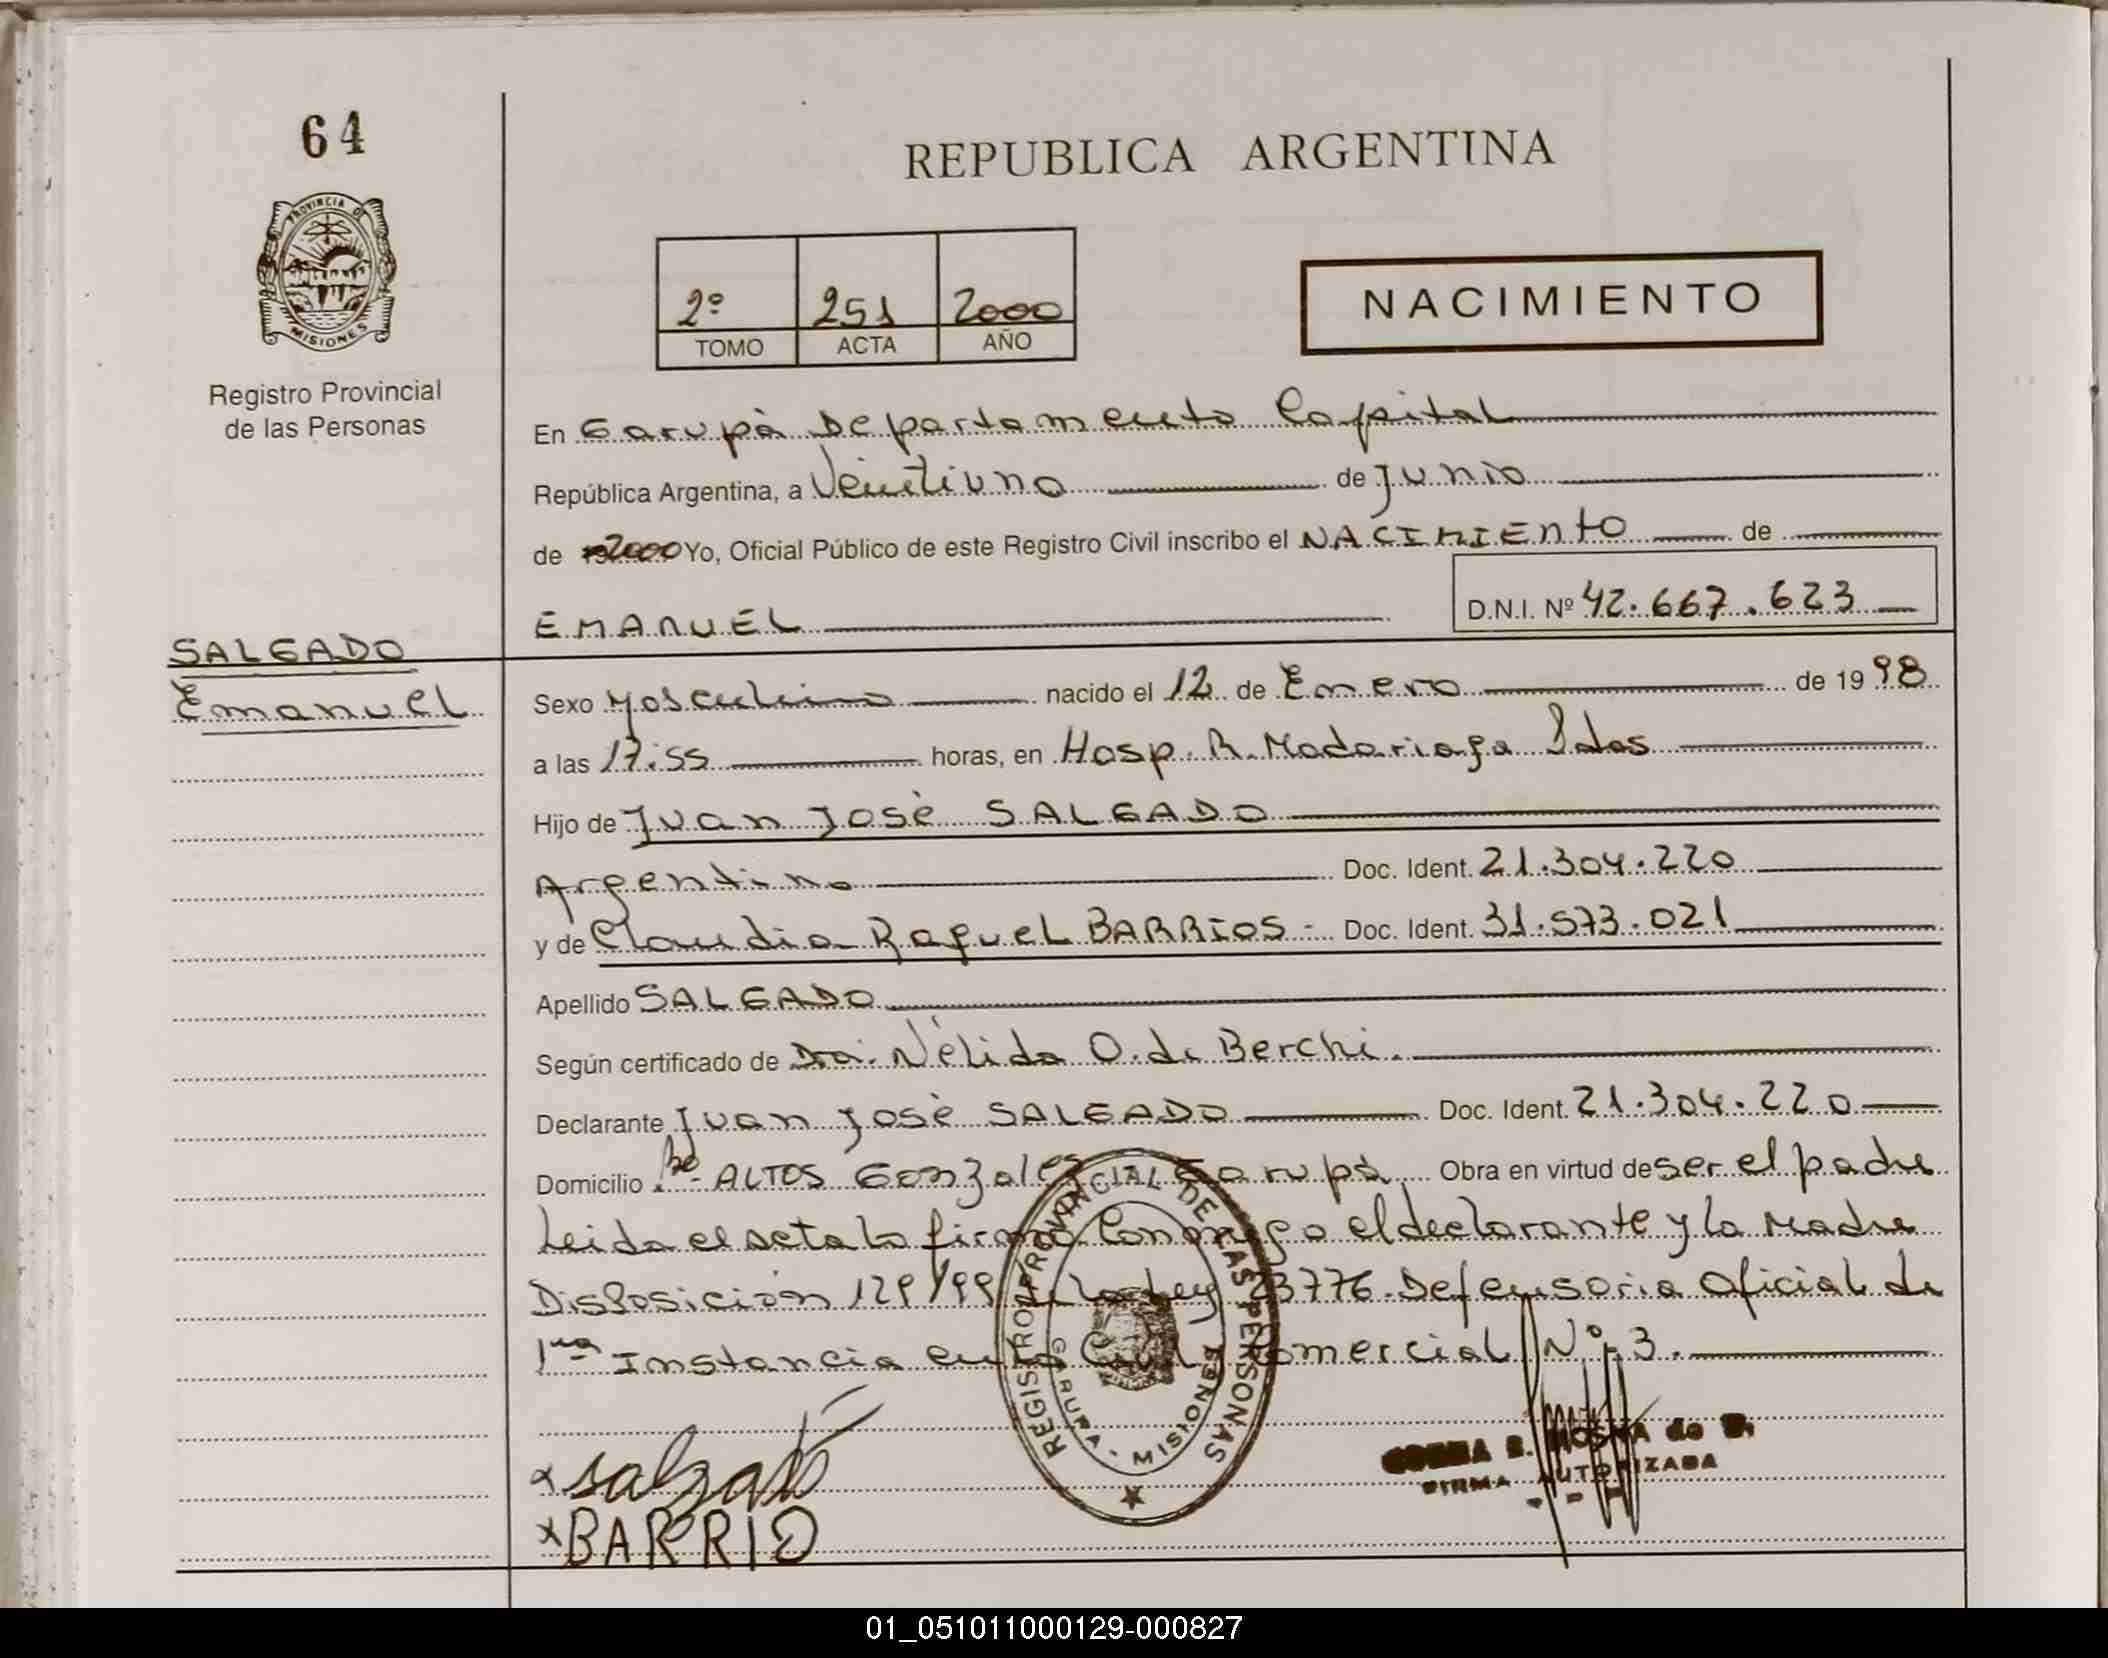 64
REPUBLICA ARGENTINA
PROVINCIA DE
MISIONES
Registro Provincial
de las Personas
2º 251 2000
TOMO ACTA AÑO
NACIMIENTO
En Garupà Departamento Capital
República Argentina, a Veintiuno de Junio
de 2000 Yo, Oficial Público de este Registro Civil inscribo el NACIMIENTO de
EMANUEL D.N.I. Nº 42.667.623
SALGADO
Emanuel
Sexo Masculino nacido el 12 de Enero de 1998
a las 17:55 horas, en Hosp. R. Madariaga Pdas
Hijo de Juan Josè SALGADO
Argentino Doc. Ident. 21.304.220
y de Claudia Raquel BARRIOS - Doc. Ident. 31.573.021
Apellido SALGADO
Según certificado de Dra. Nélida O. de Berchi.
Declarante Juan Josè SALGADO Doc. Ident. 21.304.220
Domicilio Bº ALTOS Gonzales Garupà Obra en virtud de ser el padre
Leida el acta la firma Conmigo el declarante y la Madre
Disposición 129/99 de la Ley 23776. Defensoria Oficial de
1ra Instancia en lo Civil y Comercial Nº 3.
REGISTRO PROVINCIAL DE LAS PERSONAS
GARUPA - MISIONES
x Salgado
x BARRIO
MOSKA de
FIRMA AUTORIZADA
01_051011000129-000827